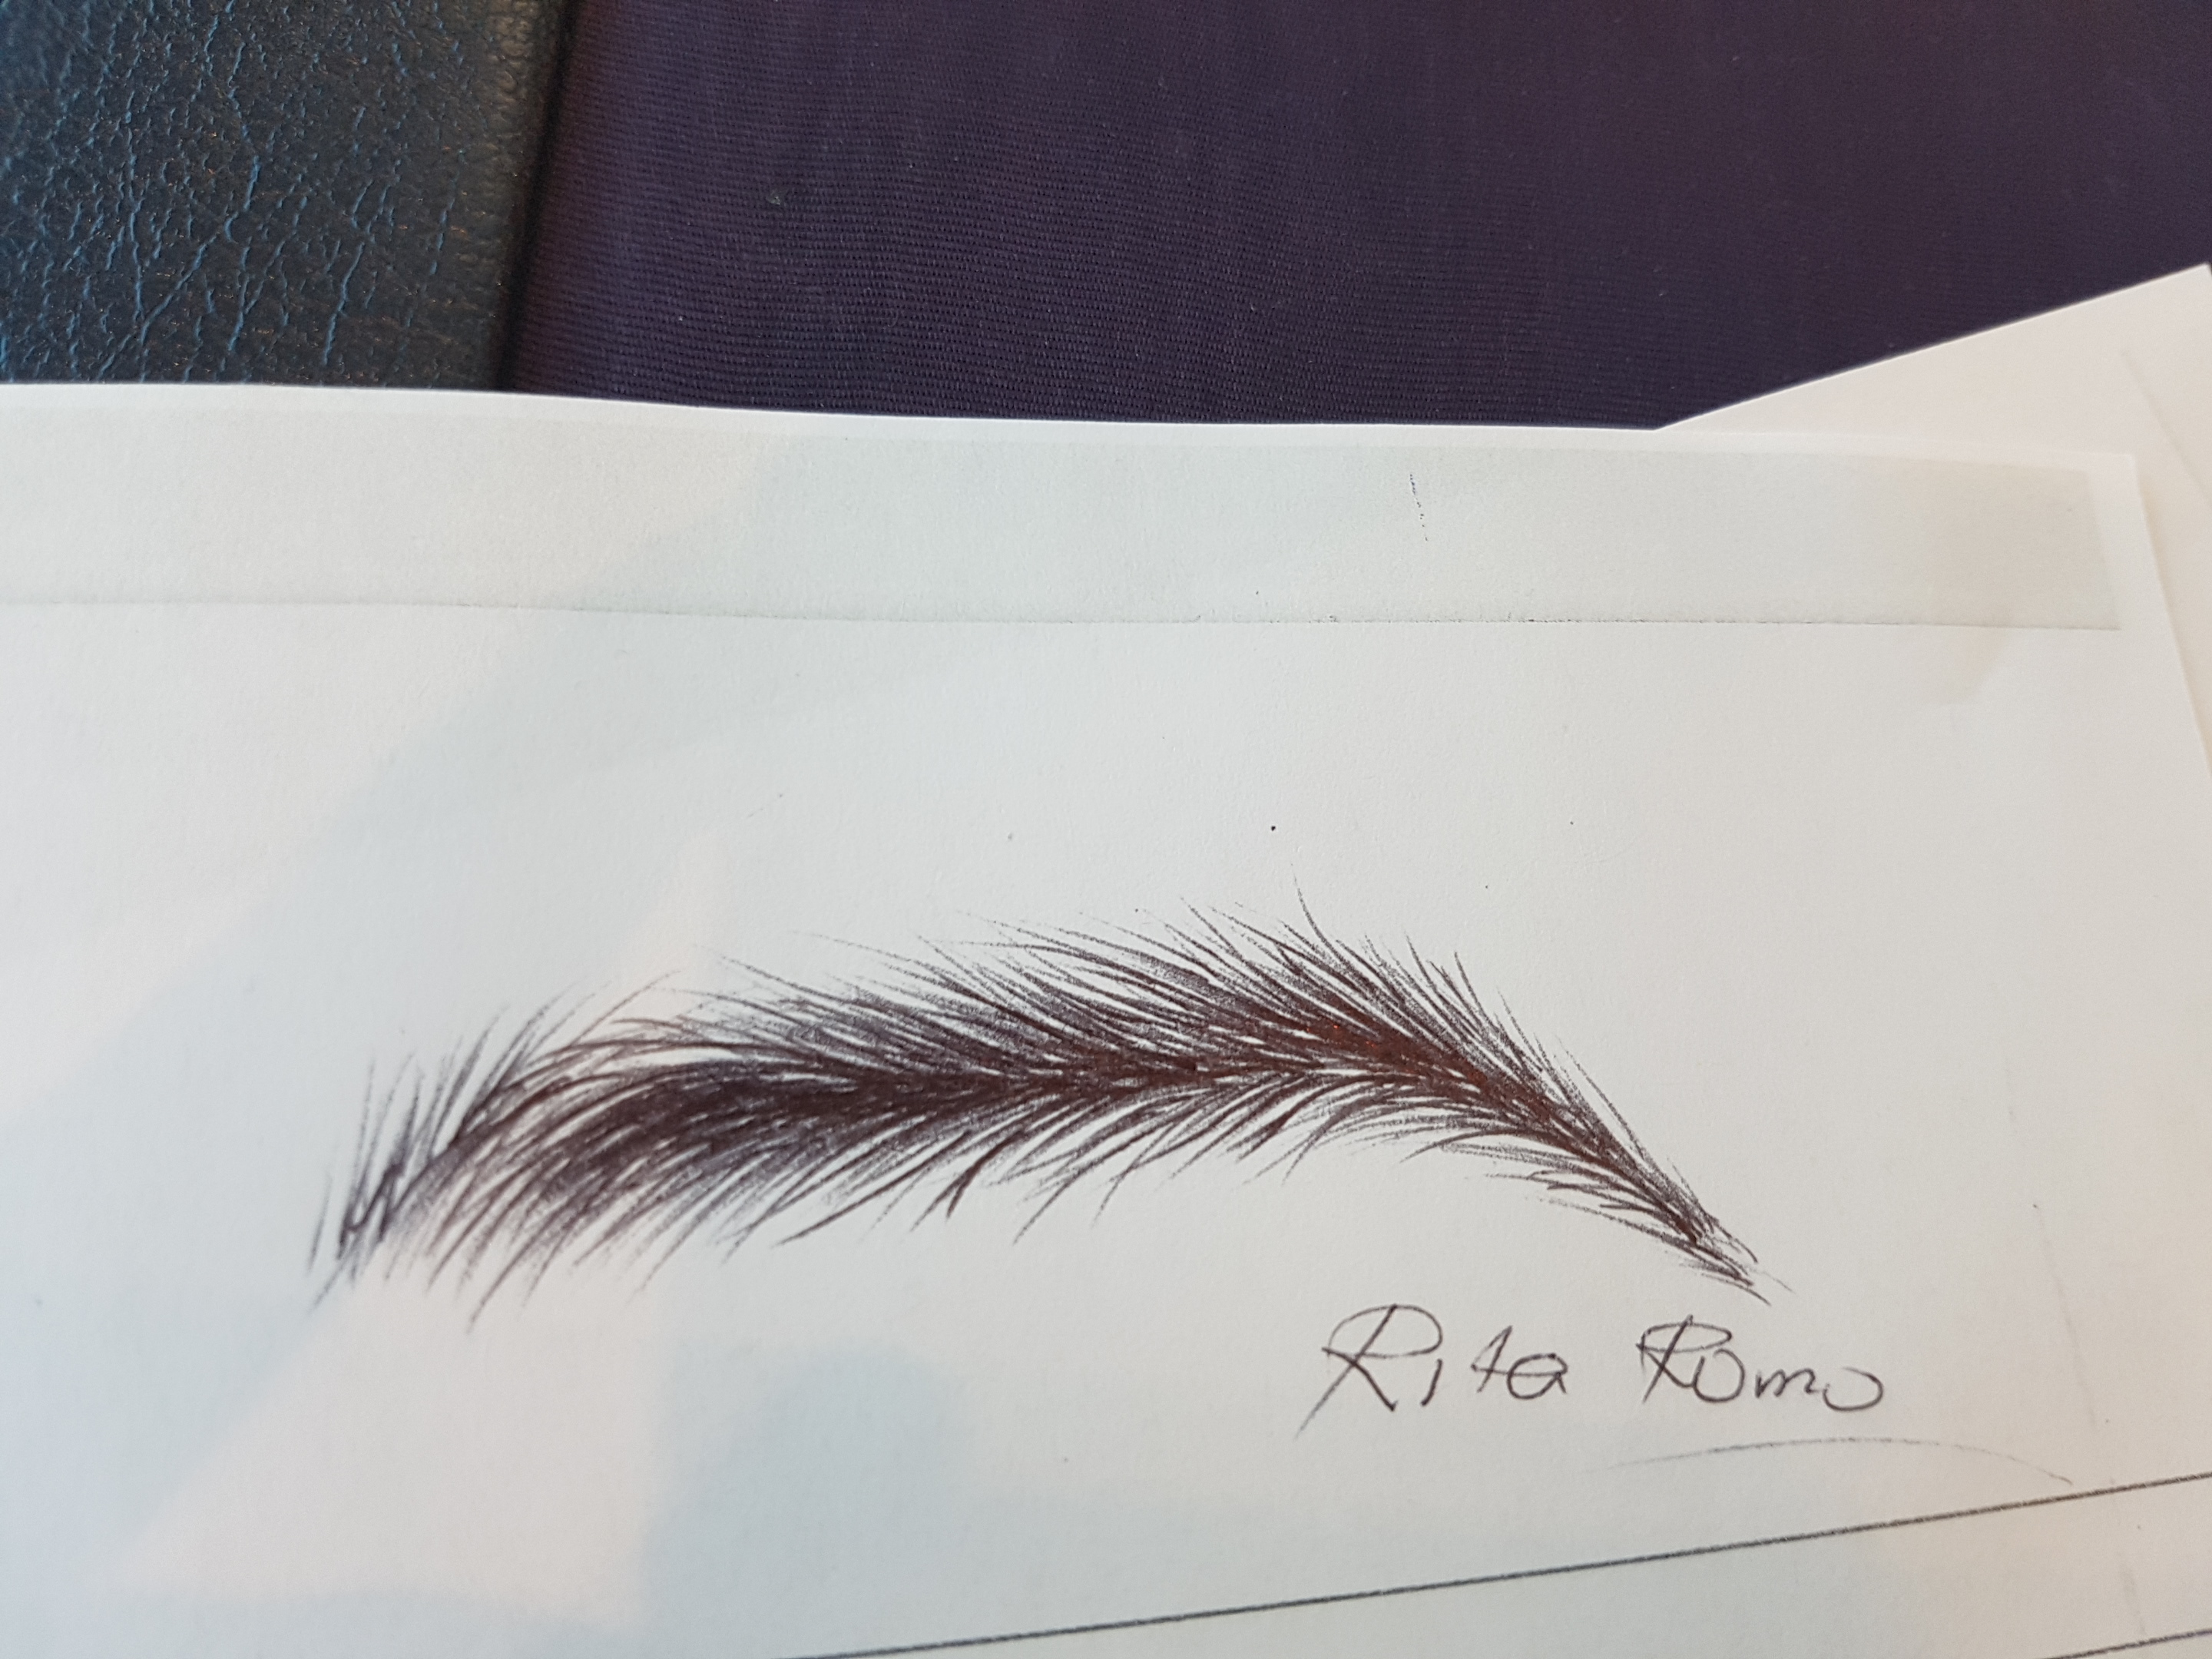 Rita Romo